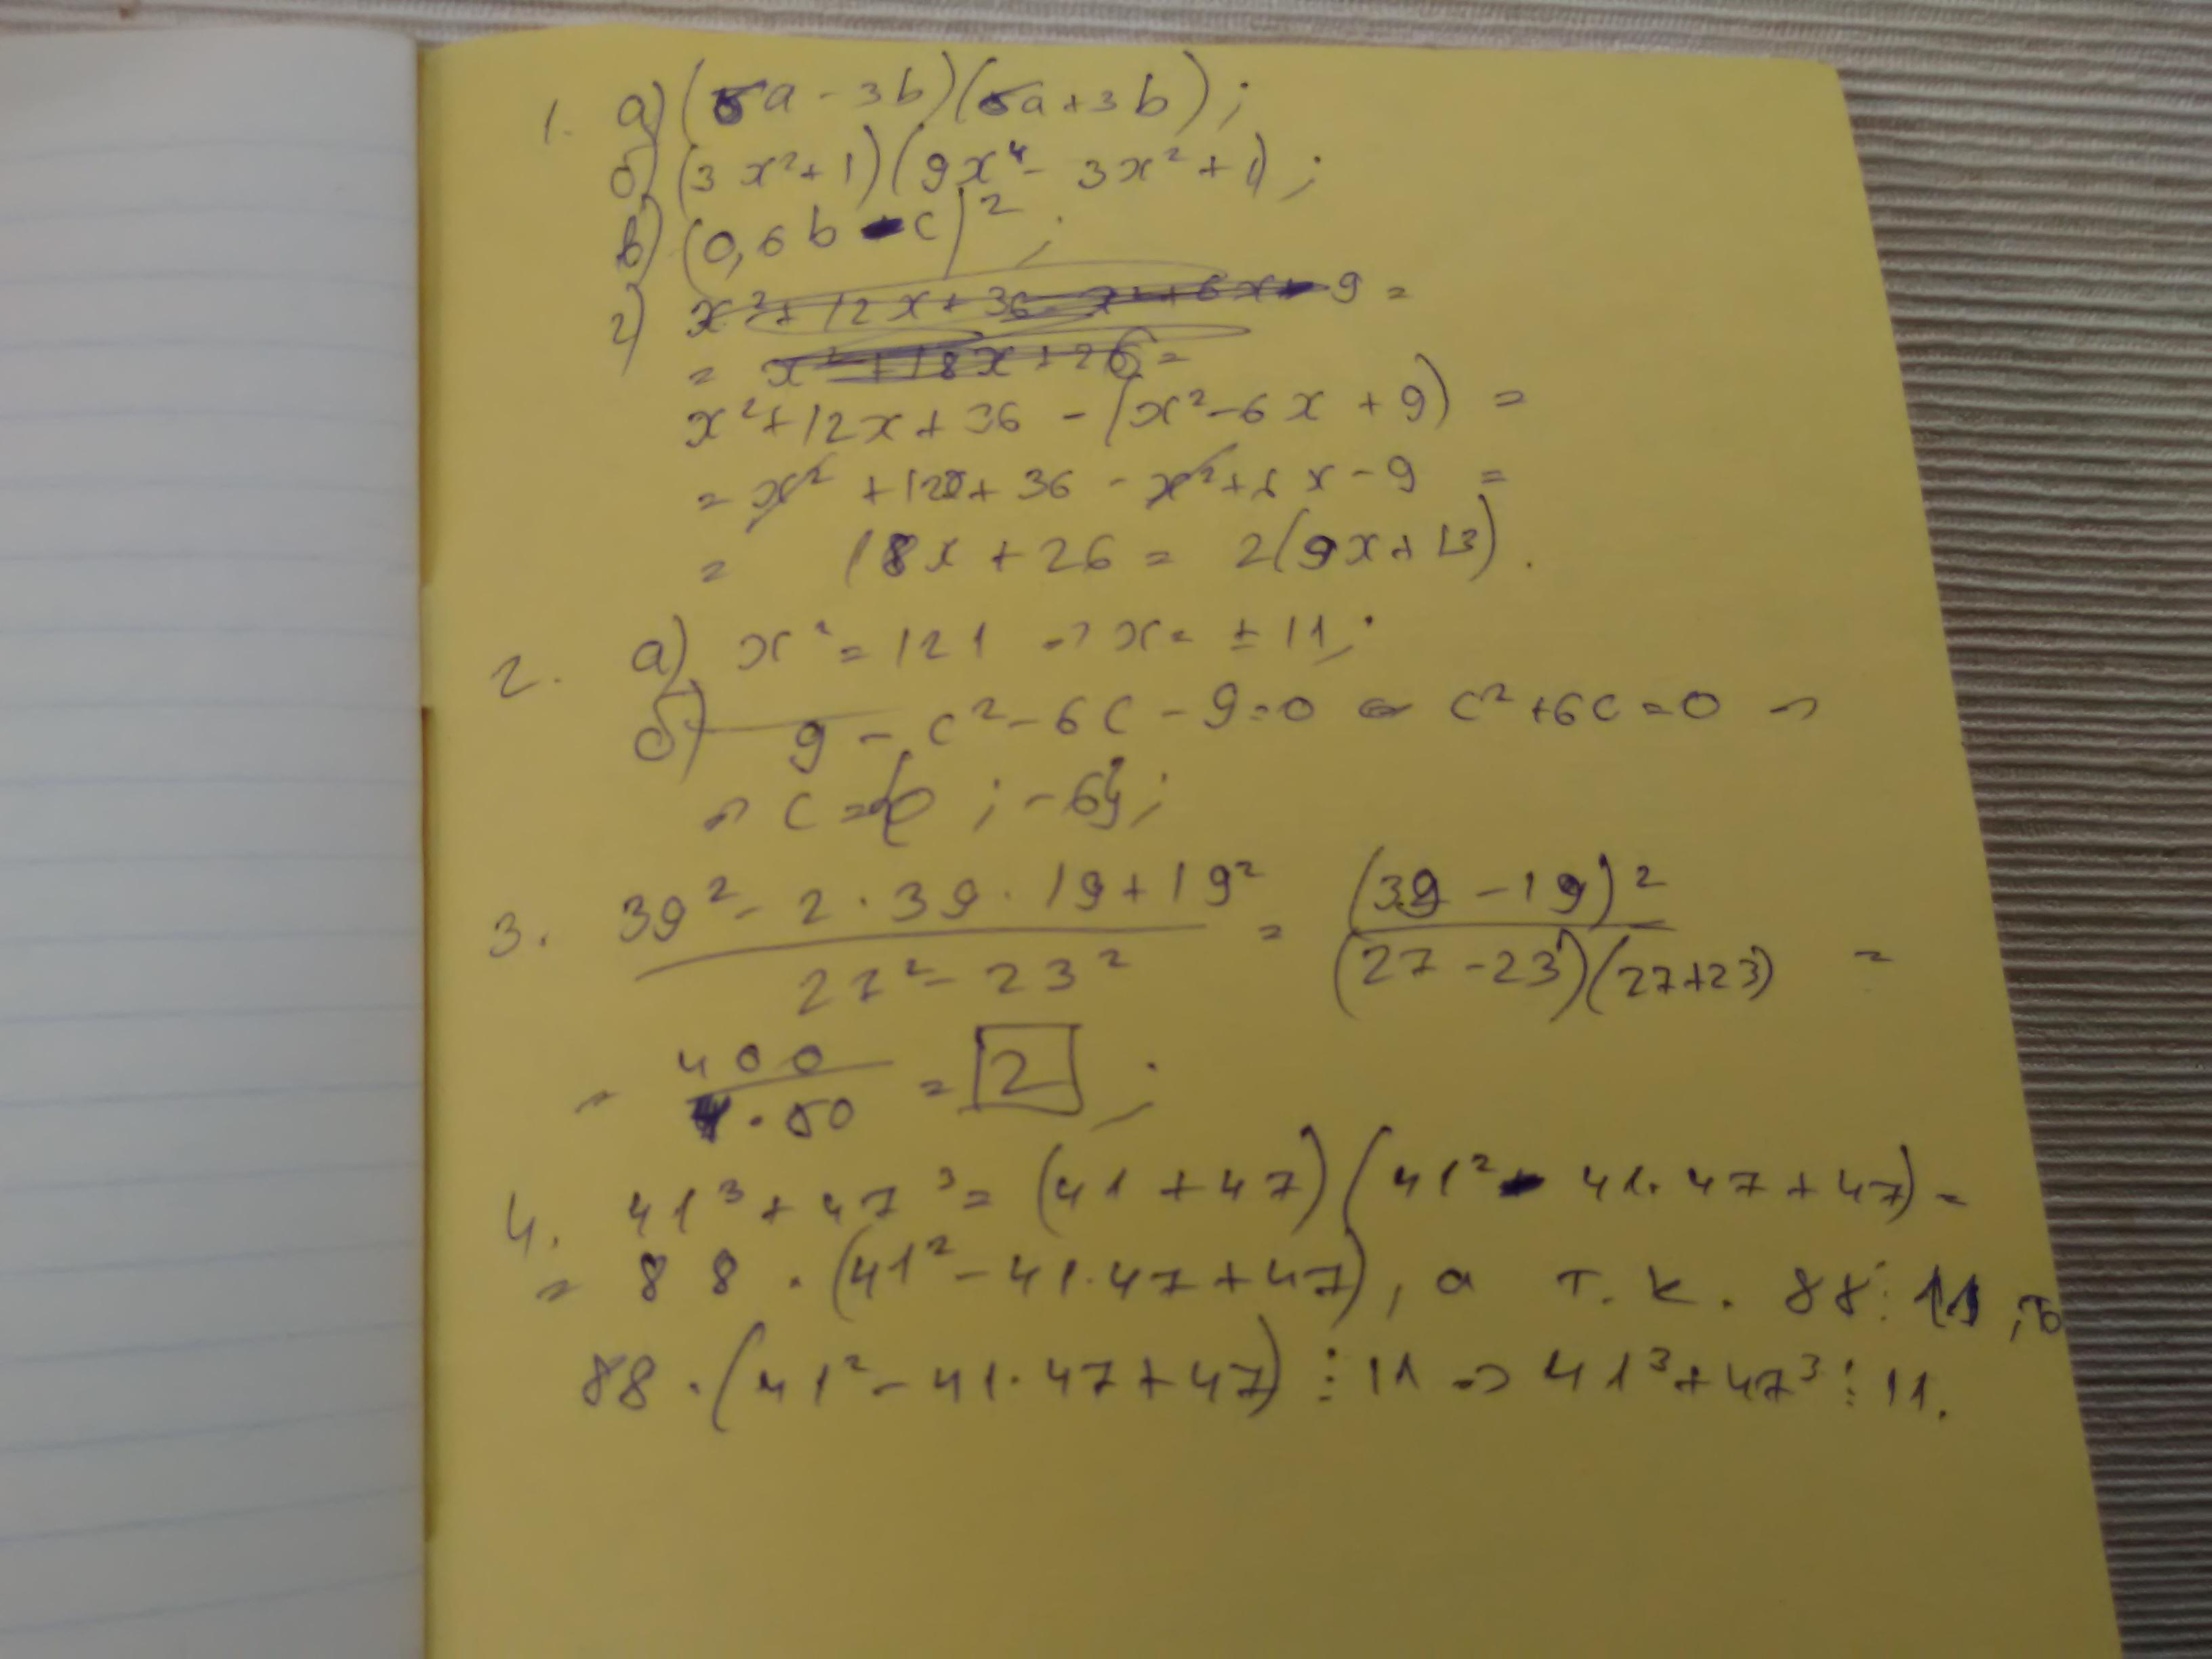 1. а) (5a - 3b)(5a + 3b);
б) (3x² + 1)(9x⁴ - 3x² + 1);
в) (0,6b - c)²;
г) x² + 12x + 36 - x² + 6x - 9 =
= x² + 18x + 26 =
x² + 12x + 36 - (x² - 6x + 9) =
= x² + 12x + 36 - x² + 6x - 9 =
= 18x + 26 = 2(9x + 13).
2. а) x² = 121 => x = ± 11;
б) 9 - c² - 6c - 9 = 0 <=> c² + 6c = 0 =>
=> c = {0 ; -6};
3. 39² - 2 · 39 · 19 + 19² / 27² - 23² = (39 - 19)² / (27 - 23)(27 + 23) =
= 400 / 4 · 50 = 2 ;
4. 41³ + 47³ = (41 + 47)(41² - 41 · 47 + 47) =
= 88 · (41² - 41 · 47 + 47), а т. к. 88 ⋮ 11, то
88 · (41² - 41 · 47 + 47) ⋮ 11 => 41³ + 47³ ⋮ 11.